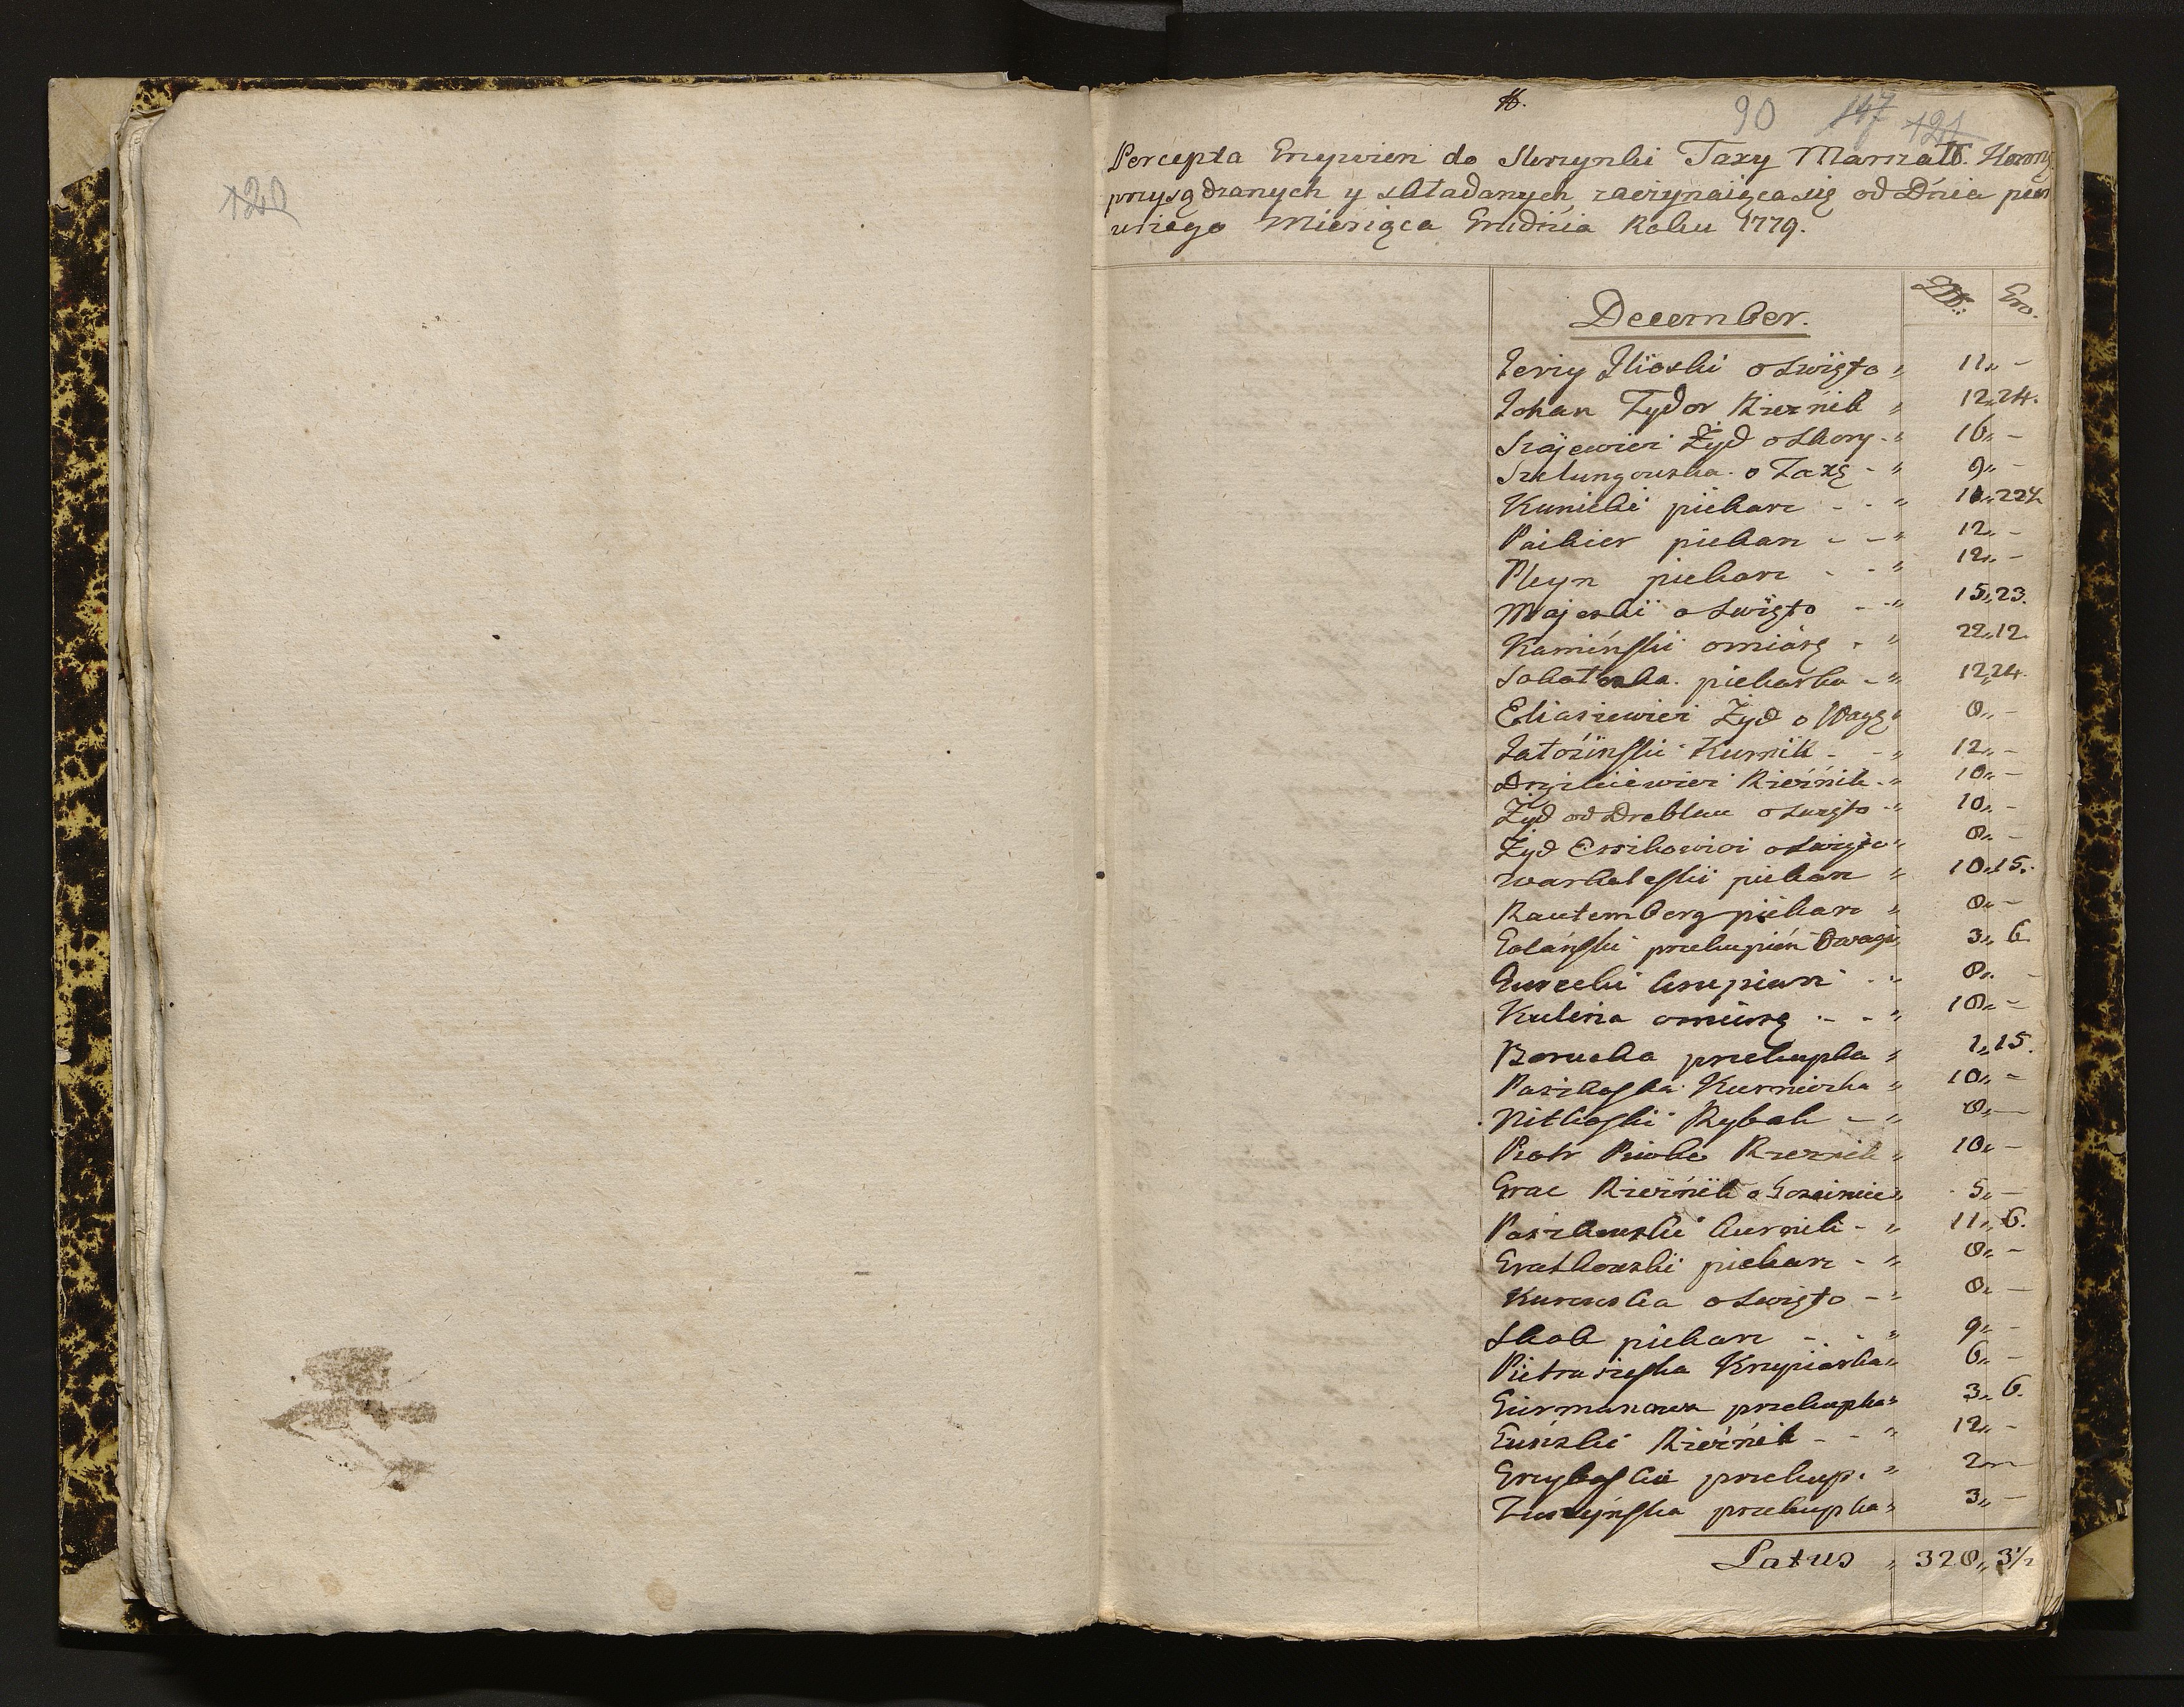 120
16.
90 147 121
Percepta Grzywien do Skrzynki Taxy Marszałł. Koronnej
przysądzanych y składanych, zaczynaiąca się od Dnia pier
wszego Miesiąca Grudnia Roku 1779.
December. Złł: Gro.
Jerzy Ilioski o Swięto 11,, -
Johan Zydor Rzeznik 12,, 24.
Szajewicz Żyd o Skory 16,, -
Szelungowska o Taxę 9,, -
Kunicki piekarz 11,, 22½
Paikier piekarz 12,, -
Pleyn piekarz 12,, -
Majeski o Swięto 15,, 23.
Kamiński o miarę 22,, 12.
piekarka 12,, 24.
Eliaszewicz Żyd o Wagę 8,, -
Jatoziński Kurnik 12,, -
Rzeźnik 10,, -
Żyd od Dreblau o Swięto 10,, -
Żyd o Swięto 8,, -
Warkaleski piekarz 10,, 15.
Rautemberg piekarz 8,, -
Golański przekupień o wagę 3,, 6.
Gurecki krupiarz 8,, -
Kulina o miarę 18,, -
Borucka przekupka 1,, 15.
Paszkoska Kurniczka 10,, -
Nitkoski Rybak 8,, -
Piotr Piwko Rzeznik 10,, -
Grac Rzeźnik o Gosciniec 5,, -
Paszkowski kurnik 11,, 6.
Gratkowski piekarz 8,, -
Kurowska o Swięto 8,, -
Skob piekarz 9,, -
Pietraszeska Krupiarka 6,, -
Giermanowa przekupka 3,, 6.
Guński Rzeźnik 12,, -
Grzyboska przekup. 2,, -
Zuszyńska przekupka 3,, -
Latus 328,, 3½